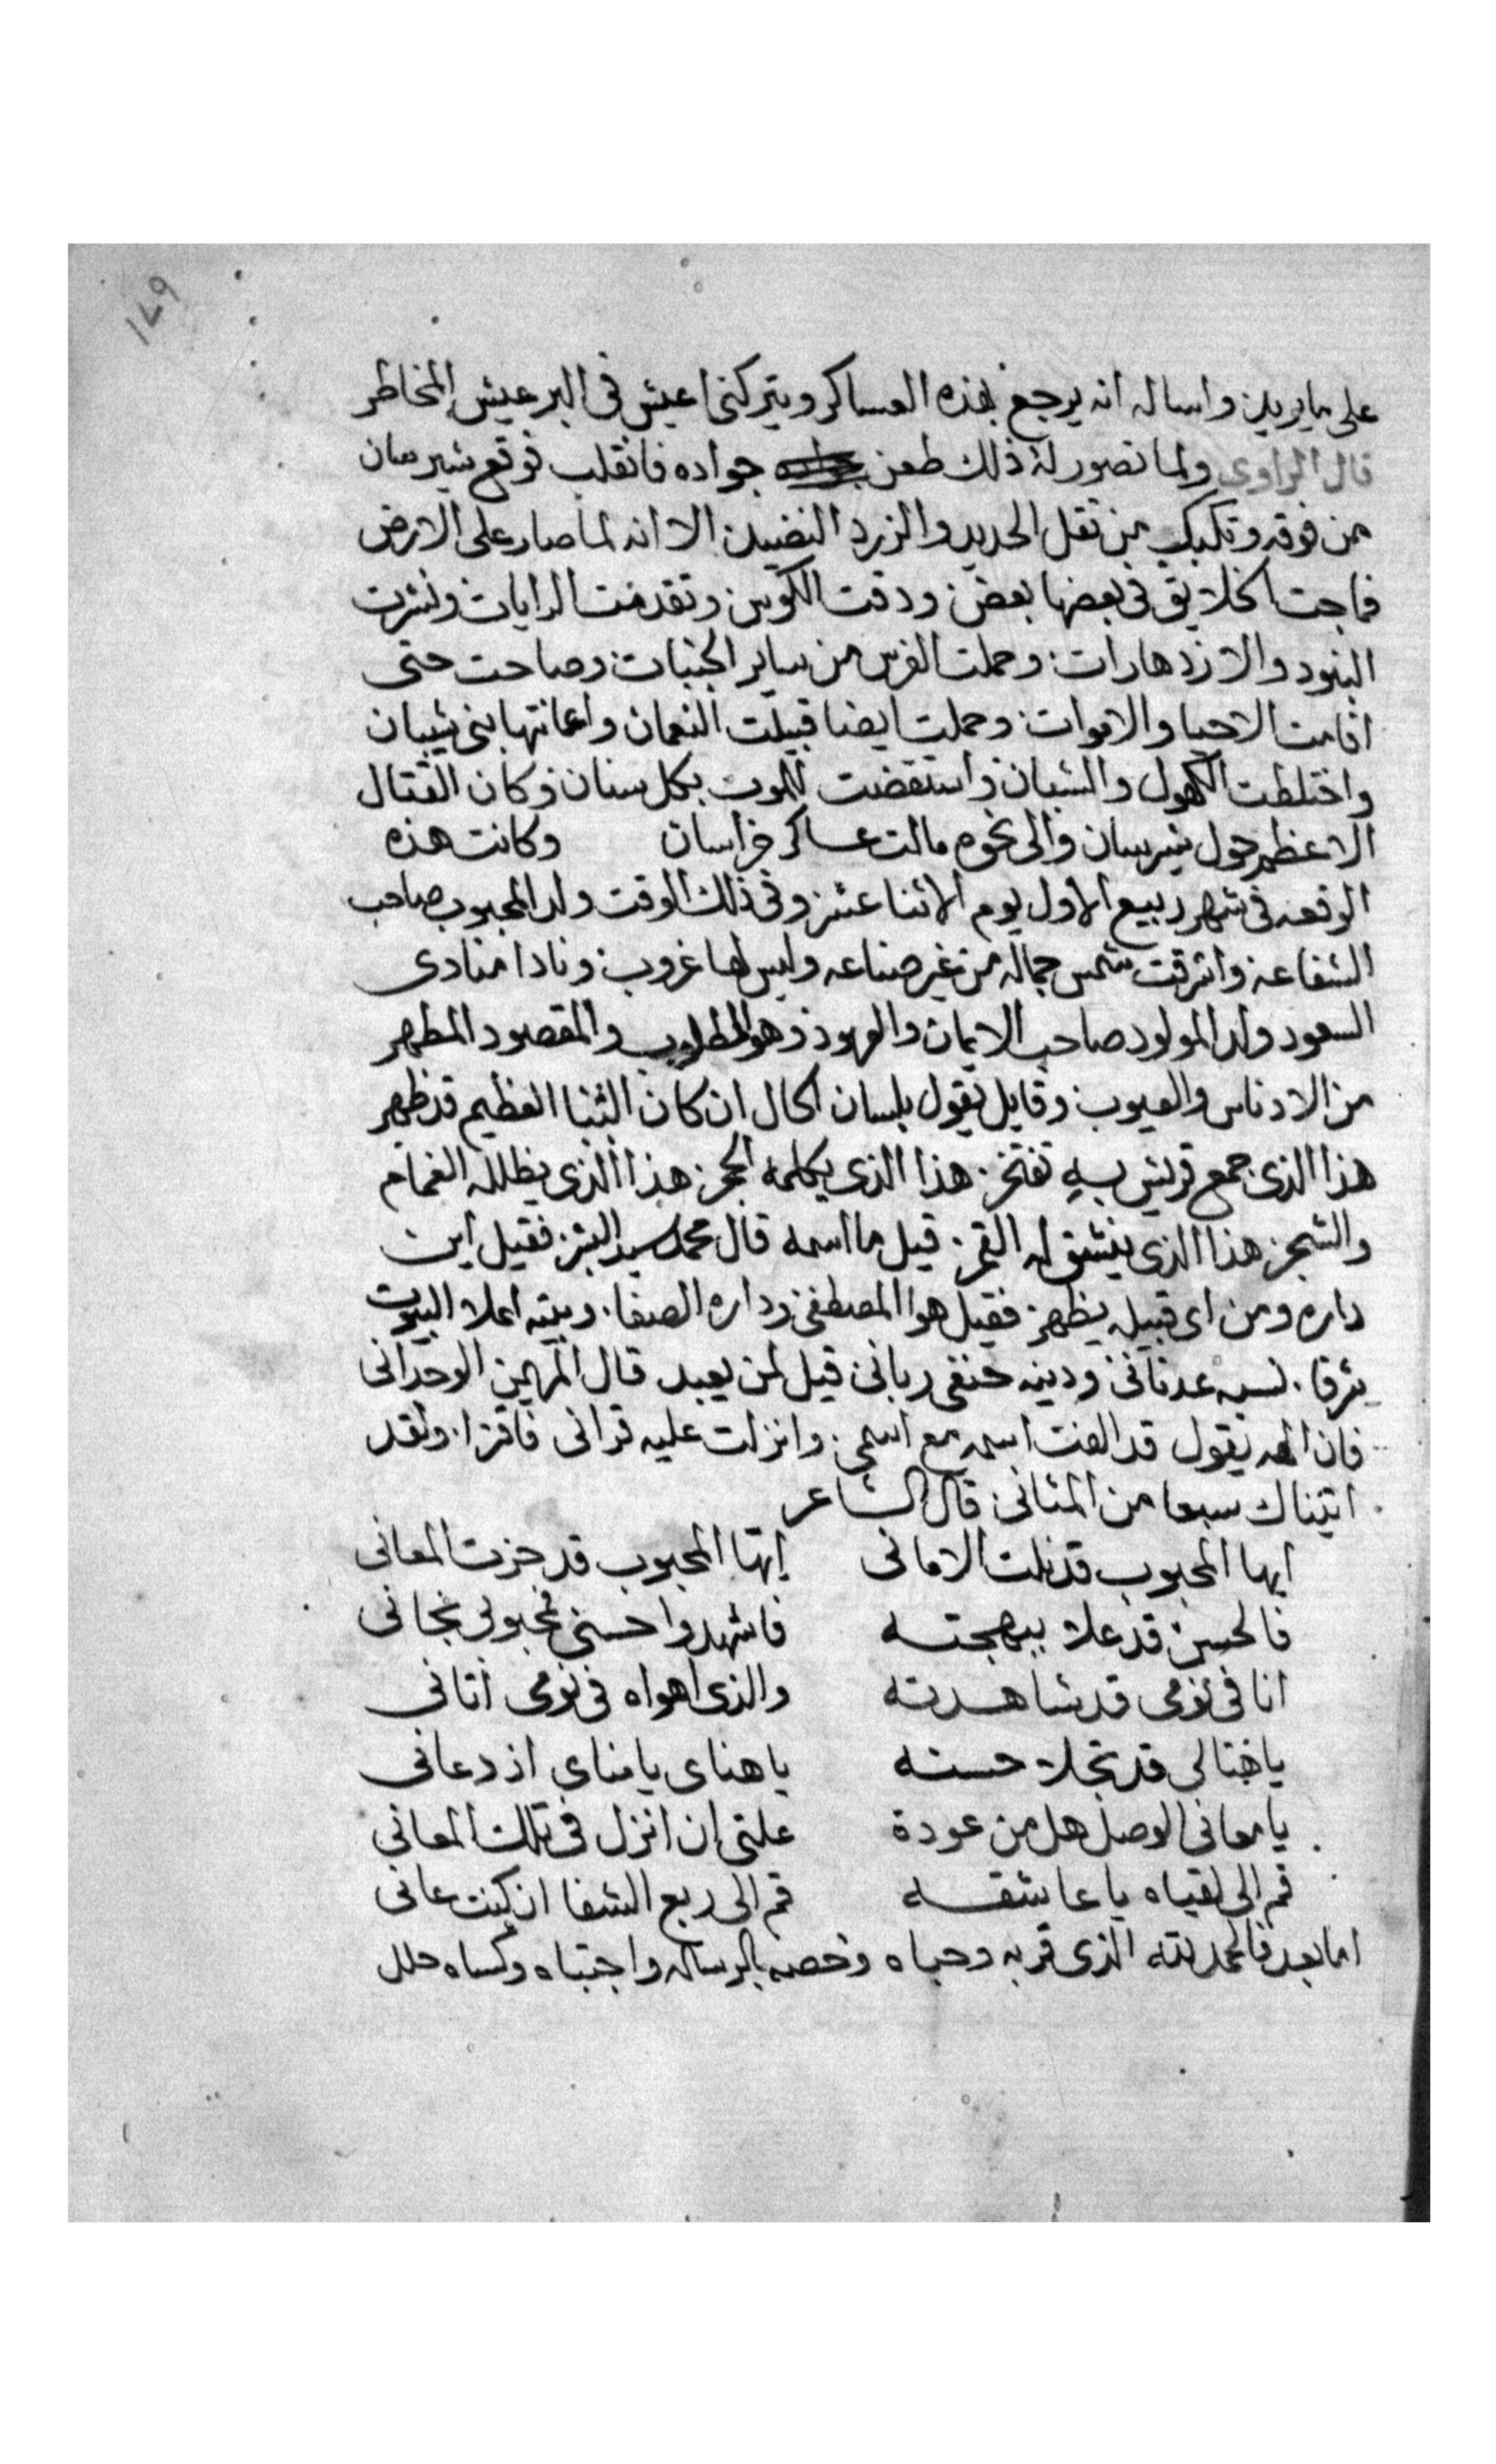 ١٤٩
على ما يريد واساله انه يرجع بهذه العساكر ويتركني اعيش في البر عيش المخاطر
قال الراوي ولما تصور له ذلك طعن جواده فانقلب فوقع شيرسان
من فوقه وتكبكب من ثقل الحديد والزرد النضيد الا انه لما صار على الارض
فماجت الخلايق في بعضها بعض ودقت الكوس وتقدمت الرايات ونشرت
البنود والازدهارات وحملت الفرس من ساير الجنبات وصاحت حتى
اقامت الاحيا والاموات وحملت ايضا قبيلت النعمان واعانتها بني شيبان
واختلطت الكهول والشبان واستقضت للموت بكل سنان وكان القتال
الاعظم حول شيرسان والى نحوه مالت عساكر خراسان وكانت هذه
الوقعه في شهر ربيع الاول يوم الاثنا عشر وفي ذلك الوقت ولد المحبوب صاحب
الشفاعه واشرقت شمس جماله من غير صناعه وليس لها غروب ونادا منادى
السعود ولد المولود صاحب الايمان والعهود وهو المطلوب والمقصود المطهر
من الادناس والعيوب وقايل يقول بلسان الحال ان كان الثنا العظيم قد ظهر
هذا الذي جمع قريش به تفتخر هذا الذي يكلمه الحجر هذا الذي يظلله الغمام
والشجر هذا الذي ينشق له القمر قيل ما اسمه قال محمد سيد البشر فقيل اين
داره ومن اى قبيله يظهر فقيل هو المصطفى وداره الصفا وبيته اعلا البيوت
شرفا نسبه عدناني ودينه حنفي رباني قيل لمن يعبد قال المهيمن الوحداني
فان الله يقول قد الفت اسمه مع اسمي وانزلت عليه قراني فاقرا ولقد
اتيناك سبعا من المثاني قال الشاعر
ايها المحبوب قد نلت الاماني ايها المحبوب قد حزت المعاني
فالحسن قد علا ببهجته فاشهدوا حسني محبوبي نجاني
انا في نومي قد شاهدته والذي اهواه في نومي اتاني
يا قد تجلا حسنه يا هناى يا مناى اذ دعاني
يا معاني الوصل هل من عودة علتي ان انزل في تلك المعاني
قم الى لقياه يا عاشقه قم الى ربع الشفا ان كنت عاني
اما بعد فالحمد لله الذي قربه وحباه وخصه بالرساله واجتباه وكساه حلل